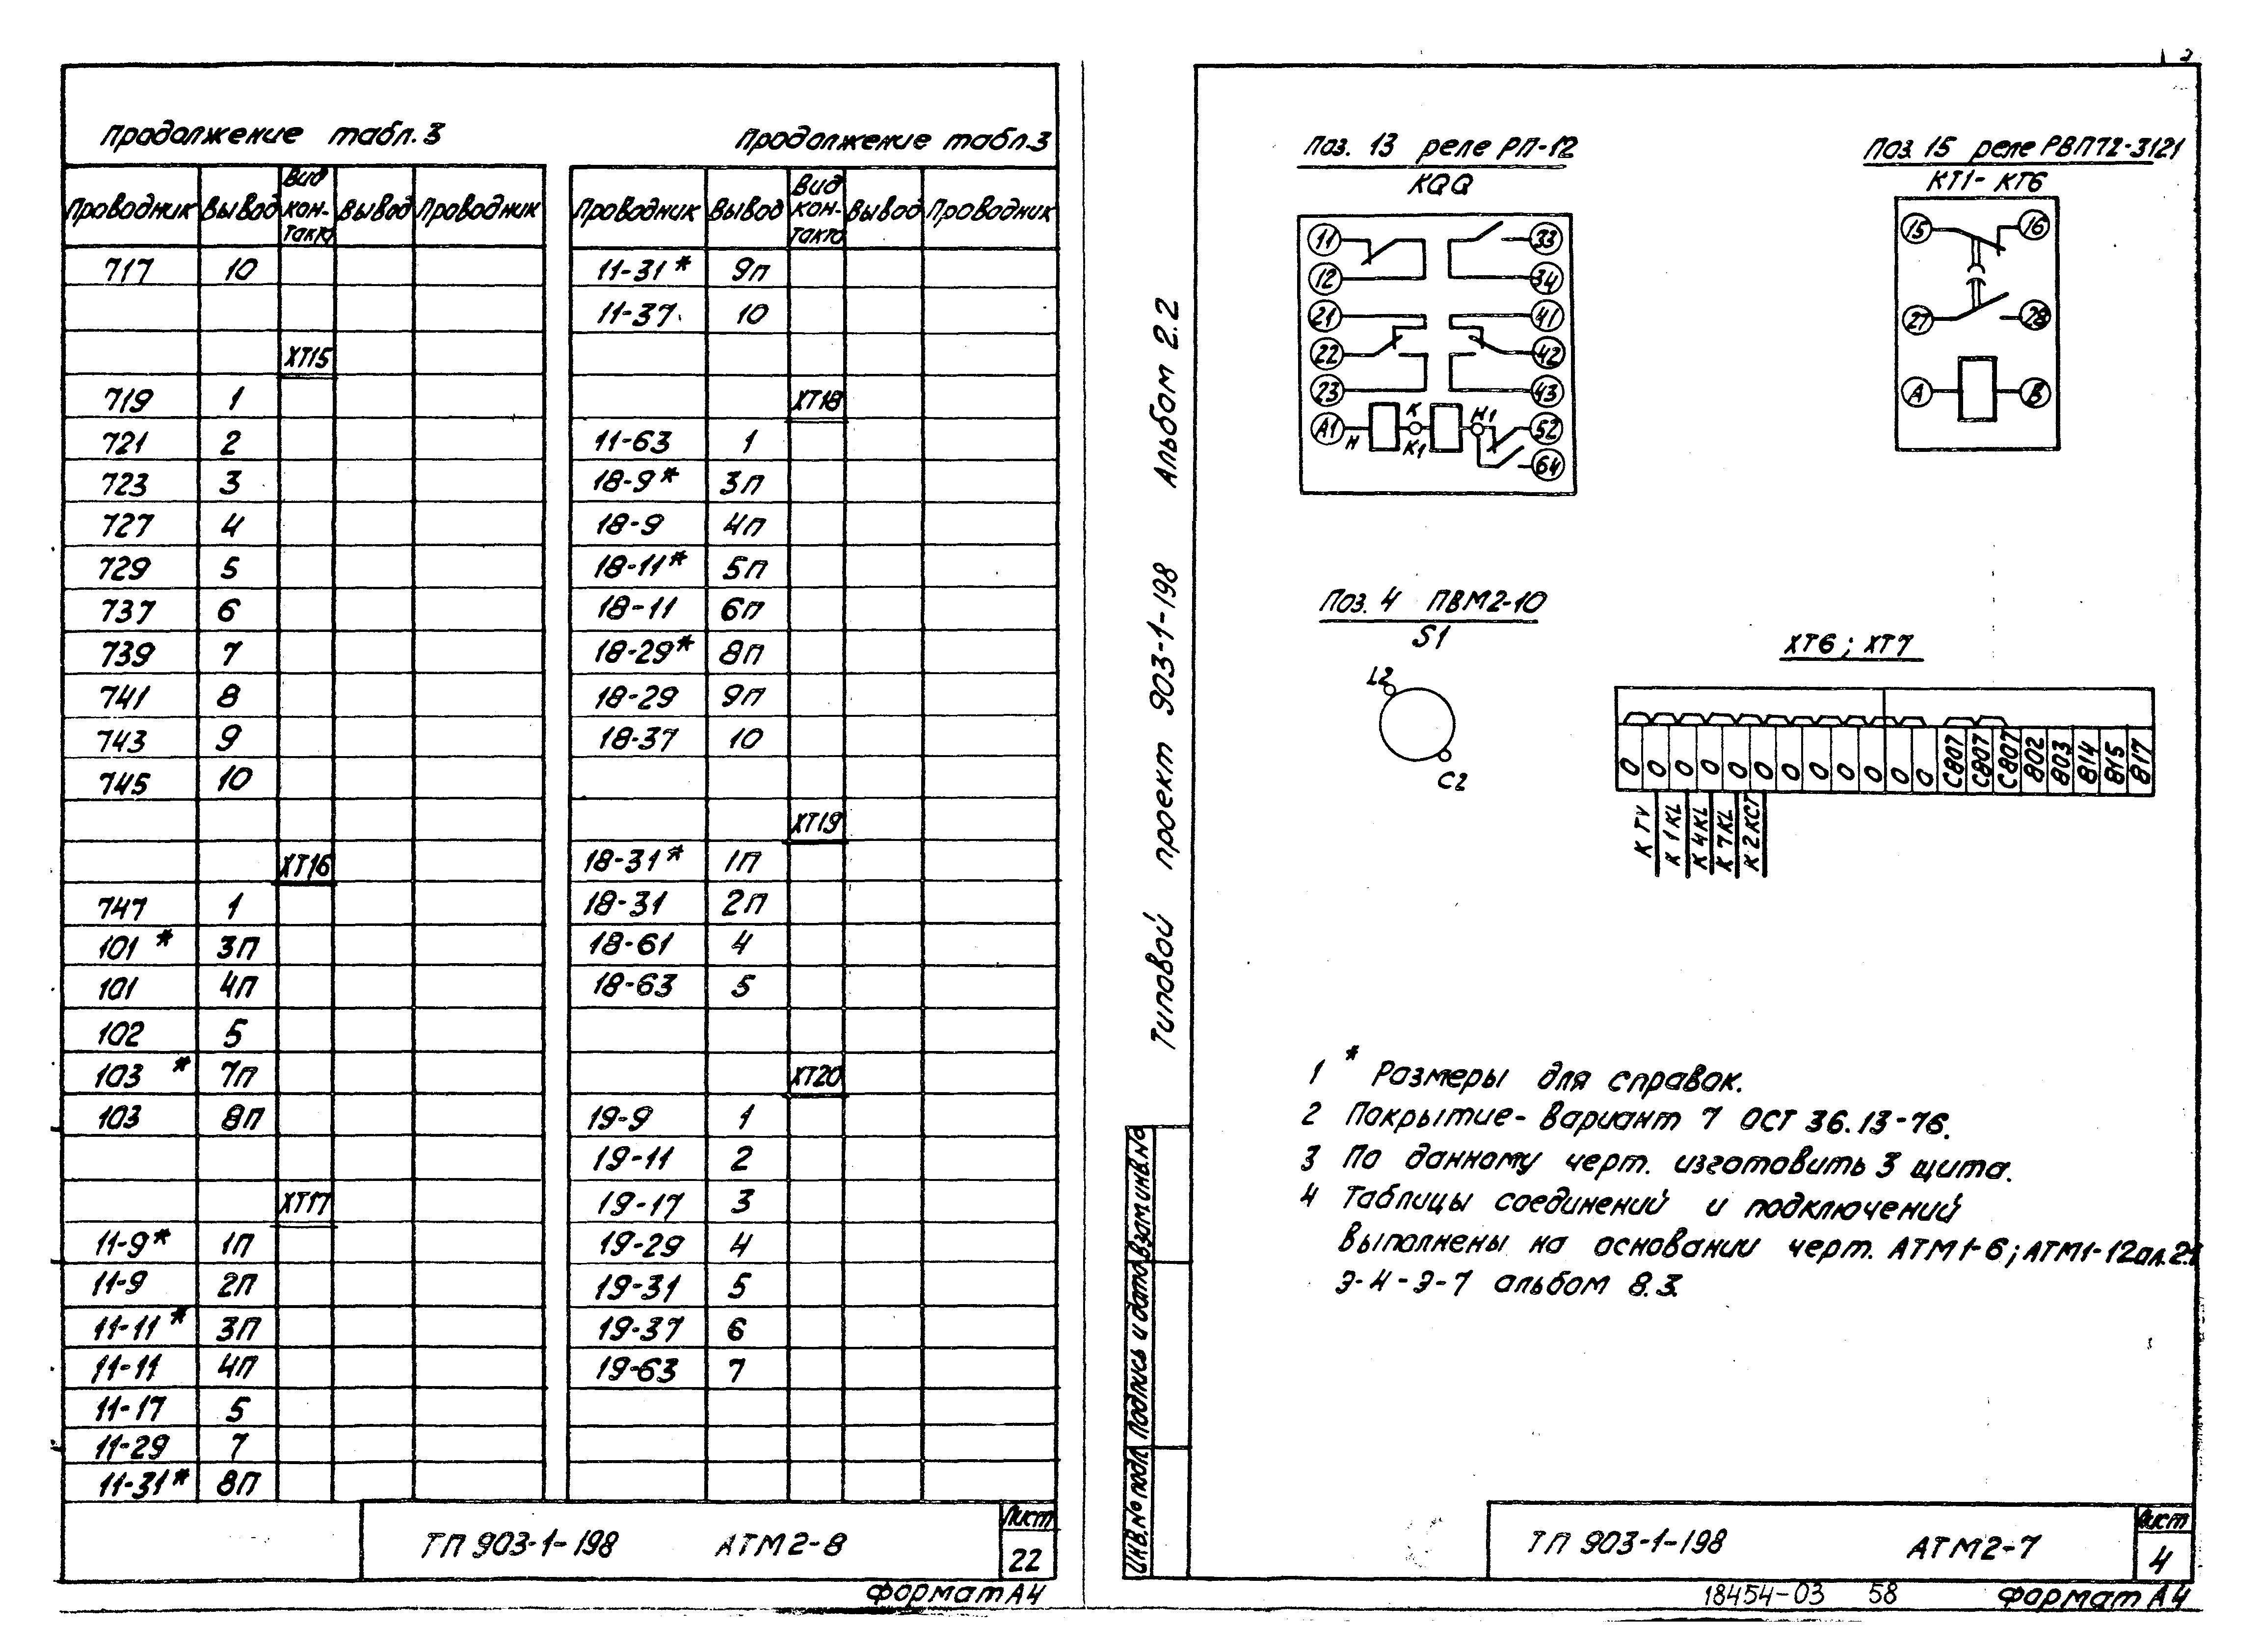 Продолжение табл.3
Проводник Вывод Вид контакта Вывод Проводник
717 10
ХТ15
719 1
721 2
723 3
727 4
729 5
737 6
739 7
741 8
743 9
745 10
ХТ16
747 1
101 * 3П
101 4П
102 5
103 * 7П
103 8П
ХТ17
11-9* 1П
11-9 2П
11-11* 3П
11-11 4П
11-17 5
11-29 7
11-31* 8П
Продолжение табл.3
Проводник Вывод Вид контакта Вывод Проводник
11-31* 9П
11-37 10
ХТ18
11-63 1
18-9* 3П
18-9 4П
18-11* 5П
18-11 6П
18-29* 8П
18-29 9П
18-37 10
ХТ19
18-31* 1П
18-31 2П
18-61 4
18-63 5
ХТ20
19-9 1
19-11 2
19-17 3
19-29 4
19-31 5
19-37 6
19-63 7
ТП 903-1-198 АТМ2-8
Лист
22
Формат А4
Типовой проект 903-1-198 Альбом 2.2
Инв.№ подл. Подпись и дата Взам.инв.№
Поз. 13 реле РП-12
KQQ
11 33
12 34
21 41
22 42
23 43
А1 Н К К1 Н1 52
64
Поз. 15 реле РВП72-3121
КТ1- КТ6
15 16
27 28
А В
Поз. 4 ПВМ2-10
S1
L2
C2
ХТ6 ; ХТ7
0 0 0 0 0 0 0 0 0 0 0 0 С807 С807 С807 802 803 814 815 817
К TV К 1KL К 4KL К 7KL К 2КСТ
1 * Размеры для справок.
2 Покрытие- Вариант 7 ОСТ 36.13-76.
3 По данному черт. изготовить 3 щита.
4 Таблицы соединений и подключений
выполнены на основании черт. АТМ1-6; АТМ1-12ал.2.1
Э-4-Э-7 альбом 8.3.
ТП 903-1-198 АТМ2-7
Лист
4
18454-03 58 Формат А4